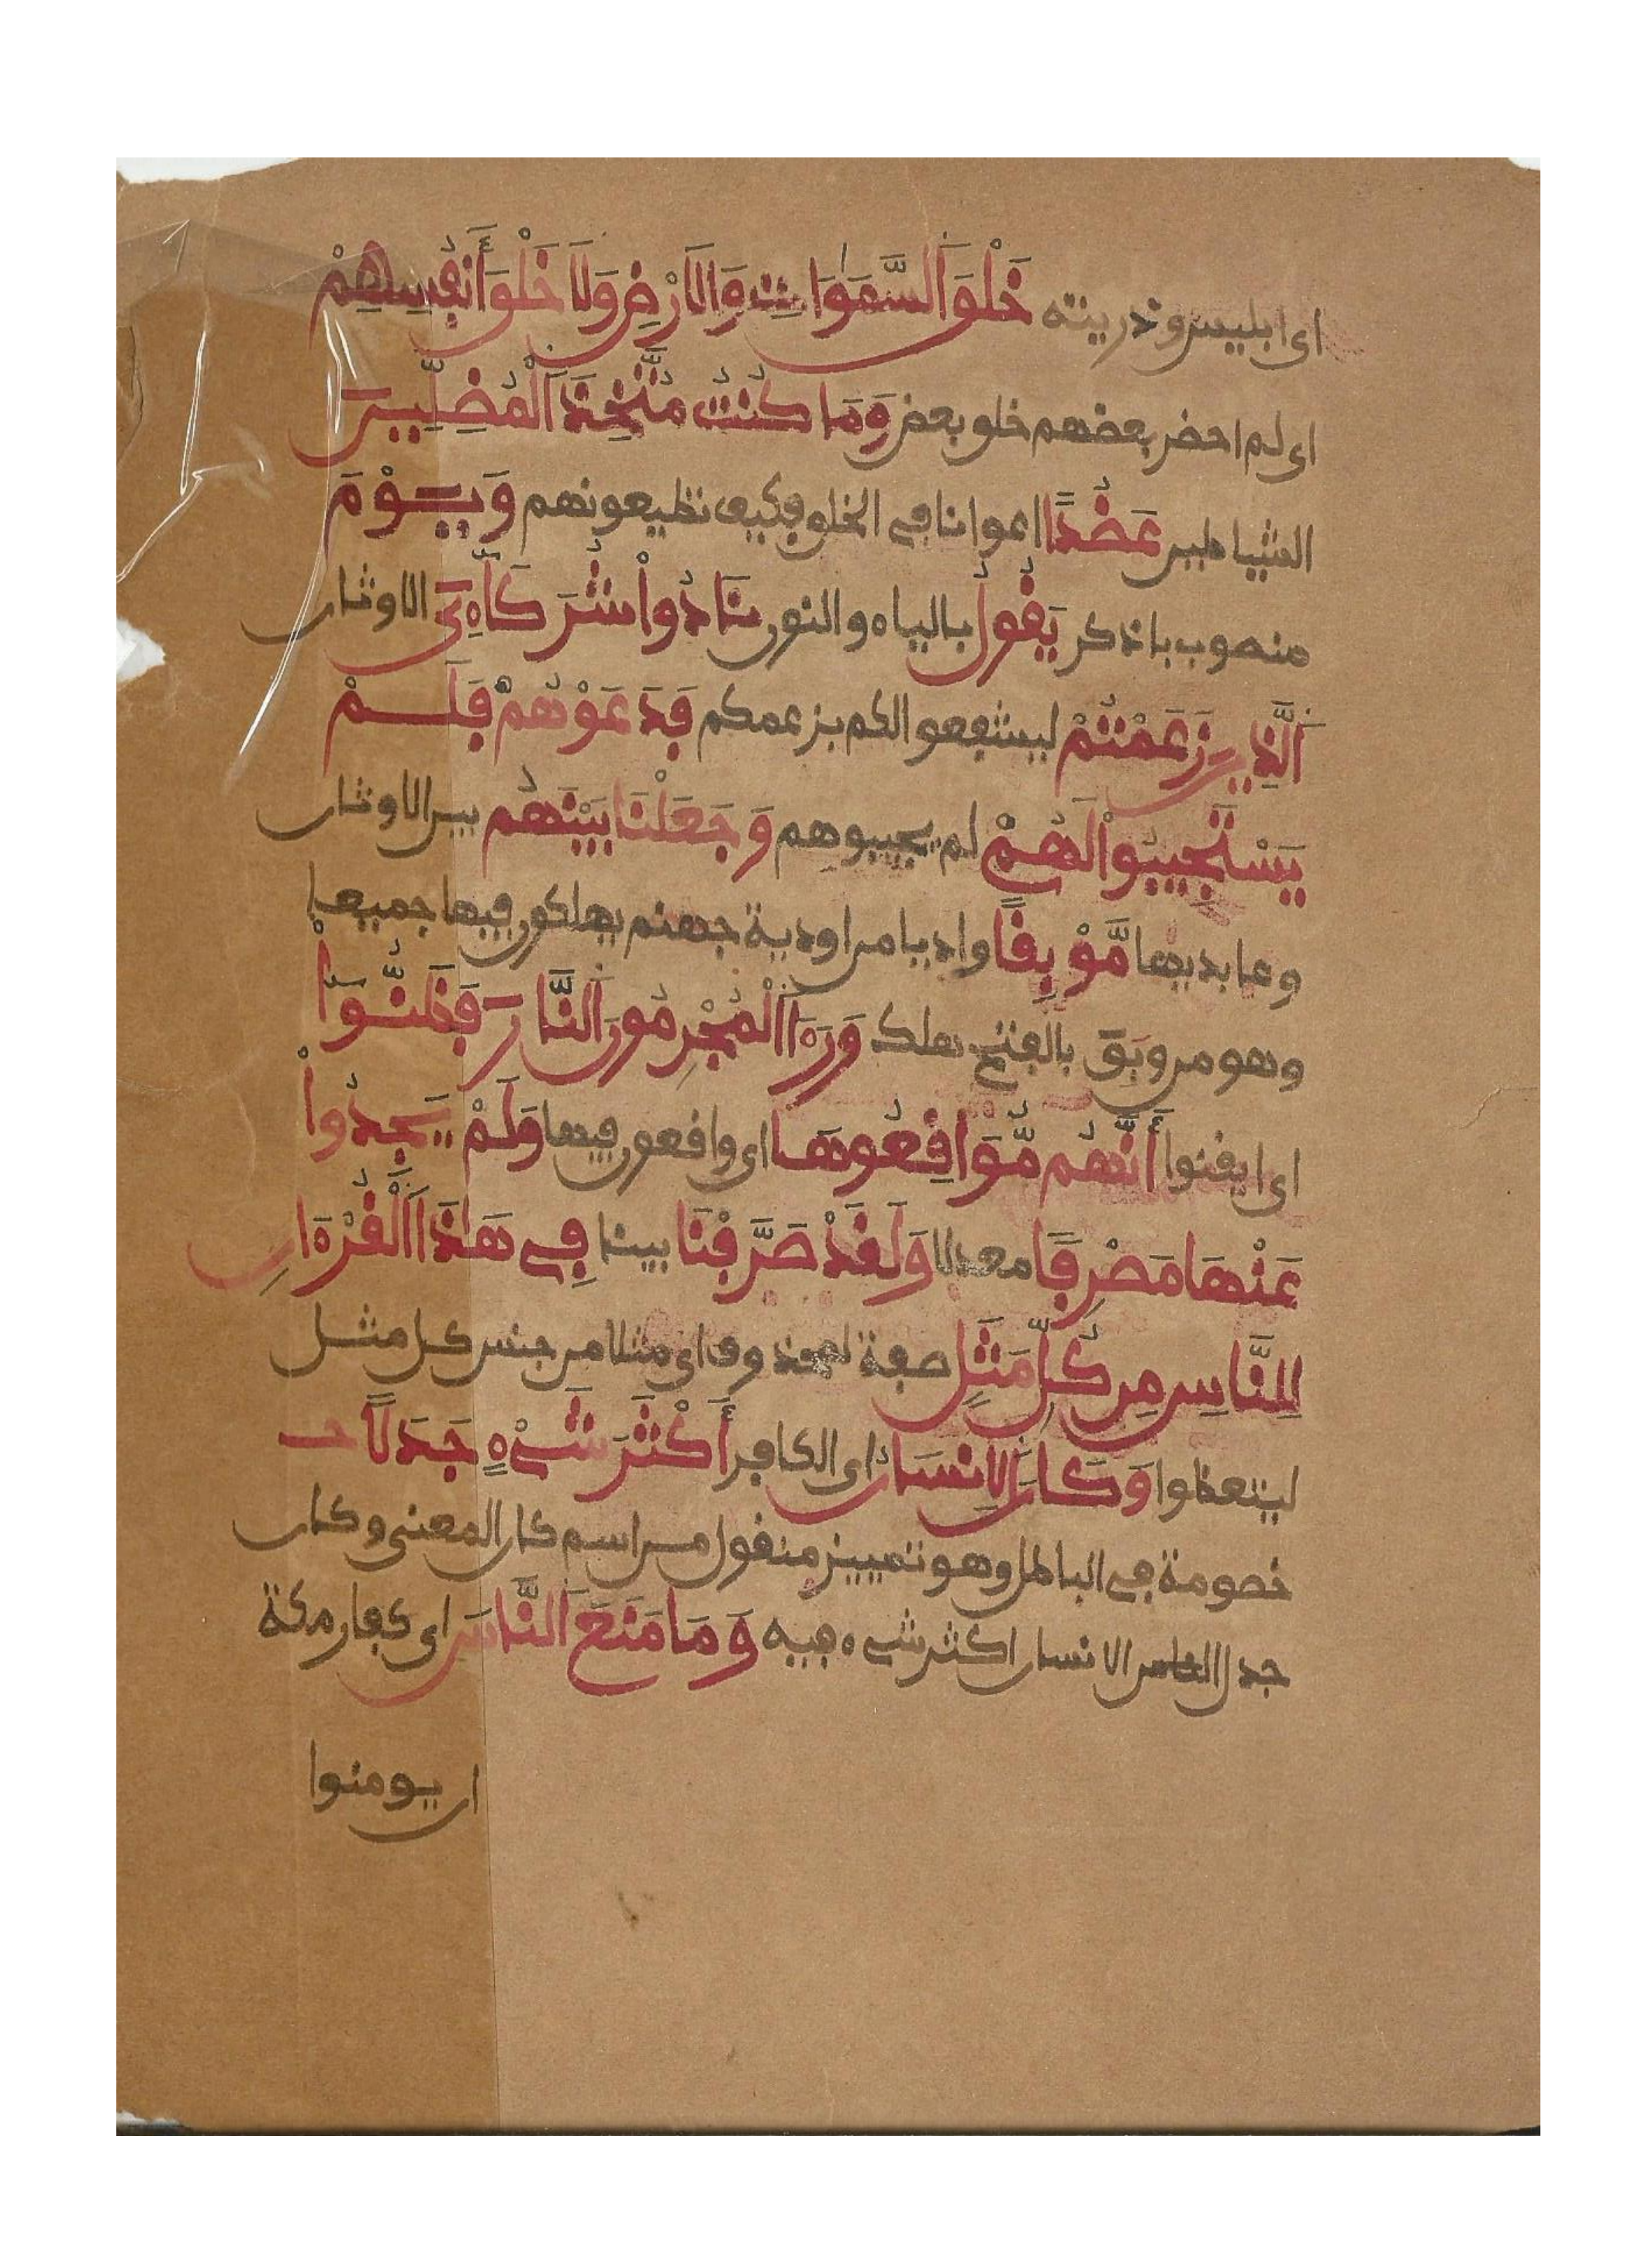 اى ابليس وذريته خَلْقَ اَ۬لسَّمَٰوَٰاتِ وَالَارْضِ وَلَا خَلْقَ أَنفُسِهِمْ
اى لم احضر بعضهم خلق بعض وَمَا كُنتُ مُتَّخِذَ اَ۬لْمُضِلِّينَ
الشياطين عَضُدًا اعوانا في الخلق فكيف تطيعونهم وَيَوْمَ
منصوب باذكر يَقُولُ بالياء والنون نَادُواْ شُرَكَآءِىَ الاوثان
اَ۬لَّذِينَ زَعَمْتُمْ ليشفعوا لكم بزعمكم فَدَعَوْهُمْ فَلَمْ
يَسْتَجِيبُواْ لَهُمْ لم يجيبوهم وَجَعَلْنَا بَيْنَهُم بين الاوثان
وعابديها مَّوْبِقًا واديا من اودية جهنم يهلكون فيها جميعا
وهو من وبَق بالفتح هلك وَرَءَا اَ۬لْمُجْرِمُونَ اَ۬لنَّارَ فَظَنُّوٓاْ
اى ايقنوا أَنَّهُم مُّوَاقِعُوهَا اى واقعون فيها وَلَمْ يَجِدُواْ
عَنْهَا مَصْرِفًا معدلا وَلَقَدْ صَرَّفْنَا بينا فِى هَٰذَا اَ۬لْقُرْءَانِ
لِلنَّاسِ مِن كُلِّ مَثَلٍ صفة لمحذوف اى مثلا من جنس كل مثل
ليتعظوا وَكَانَ اَ۬لِانسَٰنُ اى الكافر أَكْثَرَ شَىْءٍ جَدَلًا
خصومة في الباطل وهو تمييز منقول من اسم كان المعنى وكان
جدل الانسان اكثر شىء فيه وَمَا مَنَعَ اَ۬لنَّاسَ اى كفار مكة
ان يومنوا